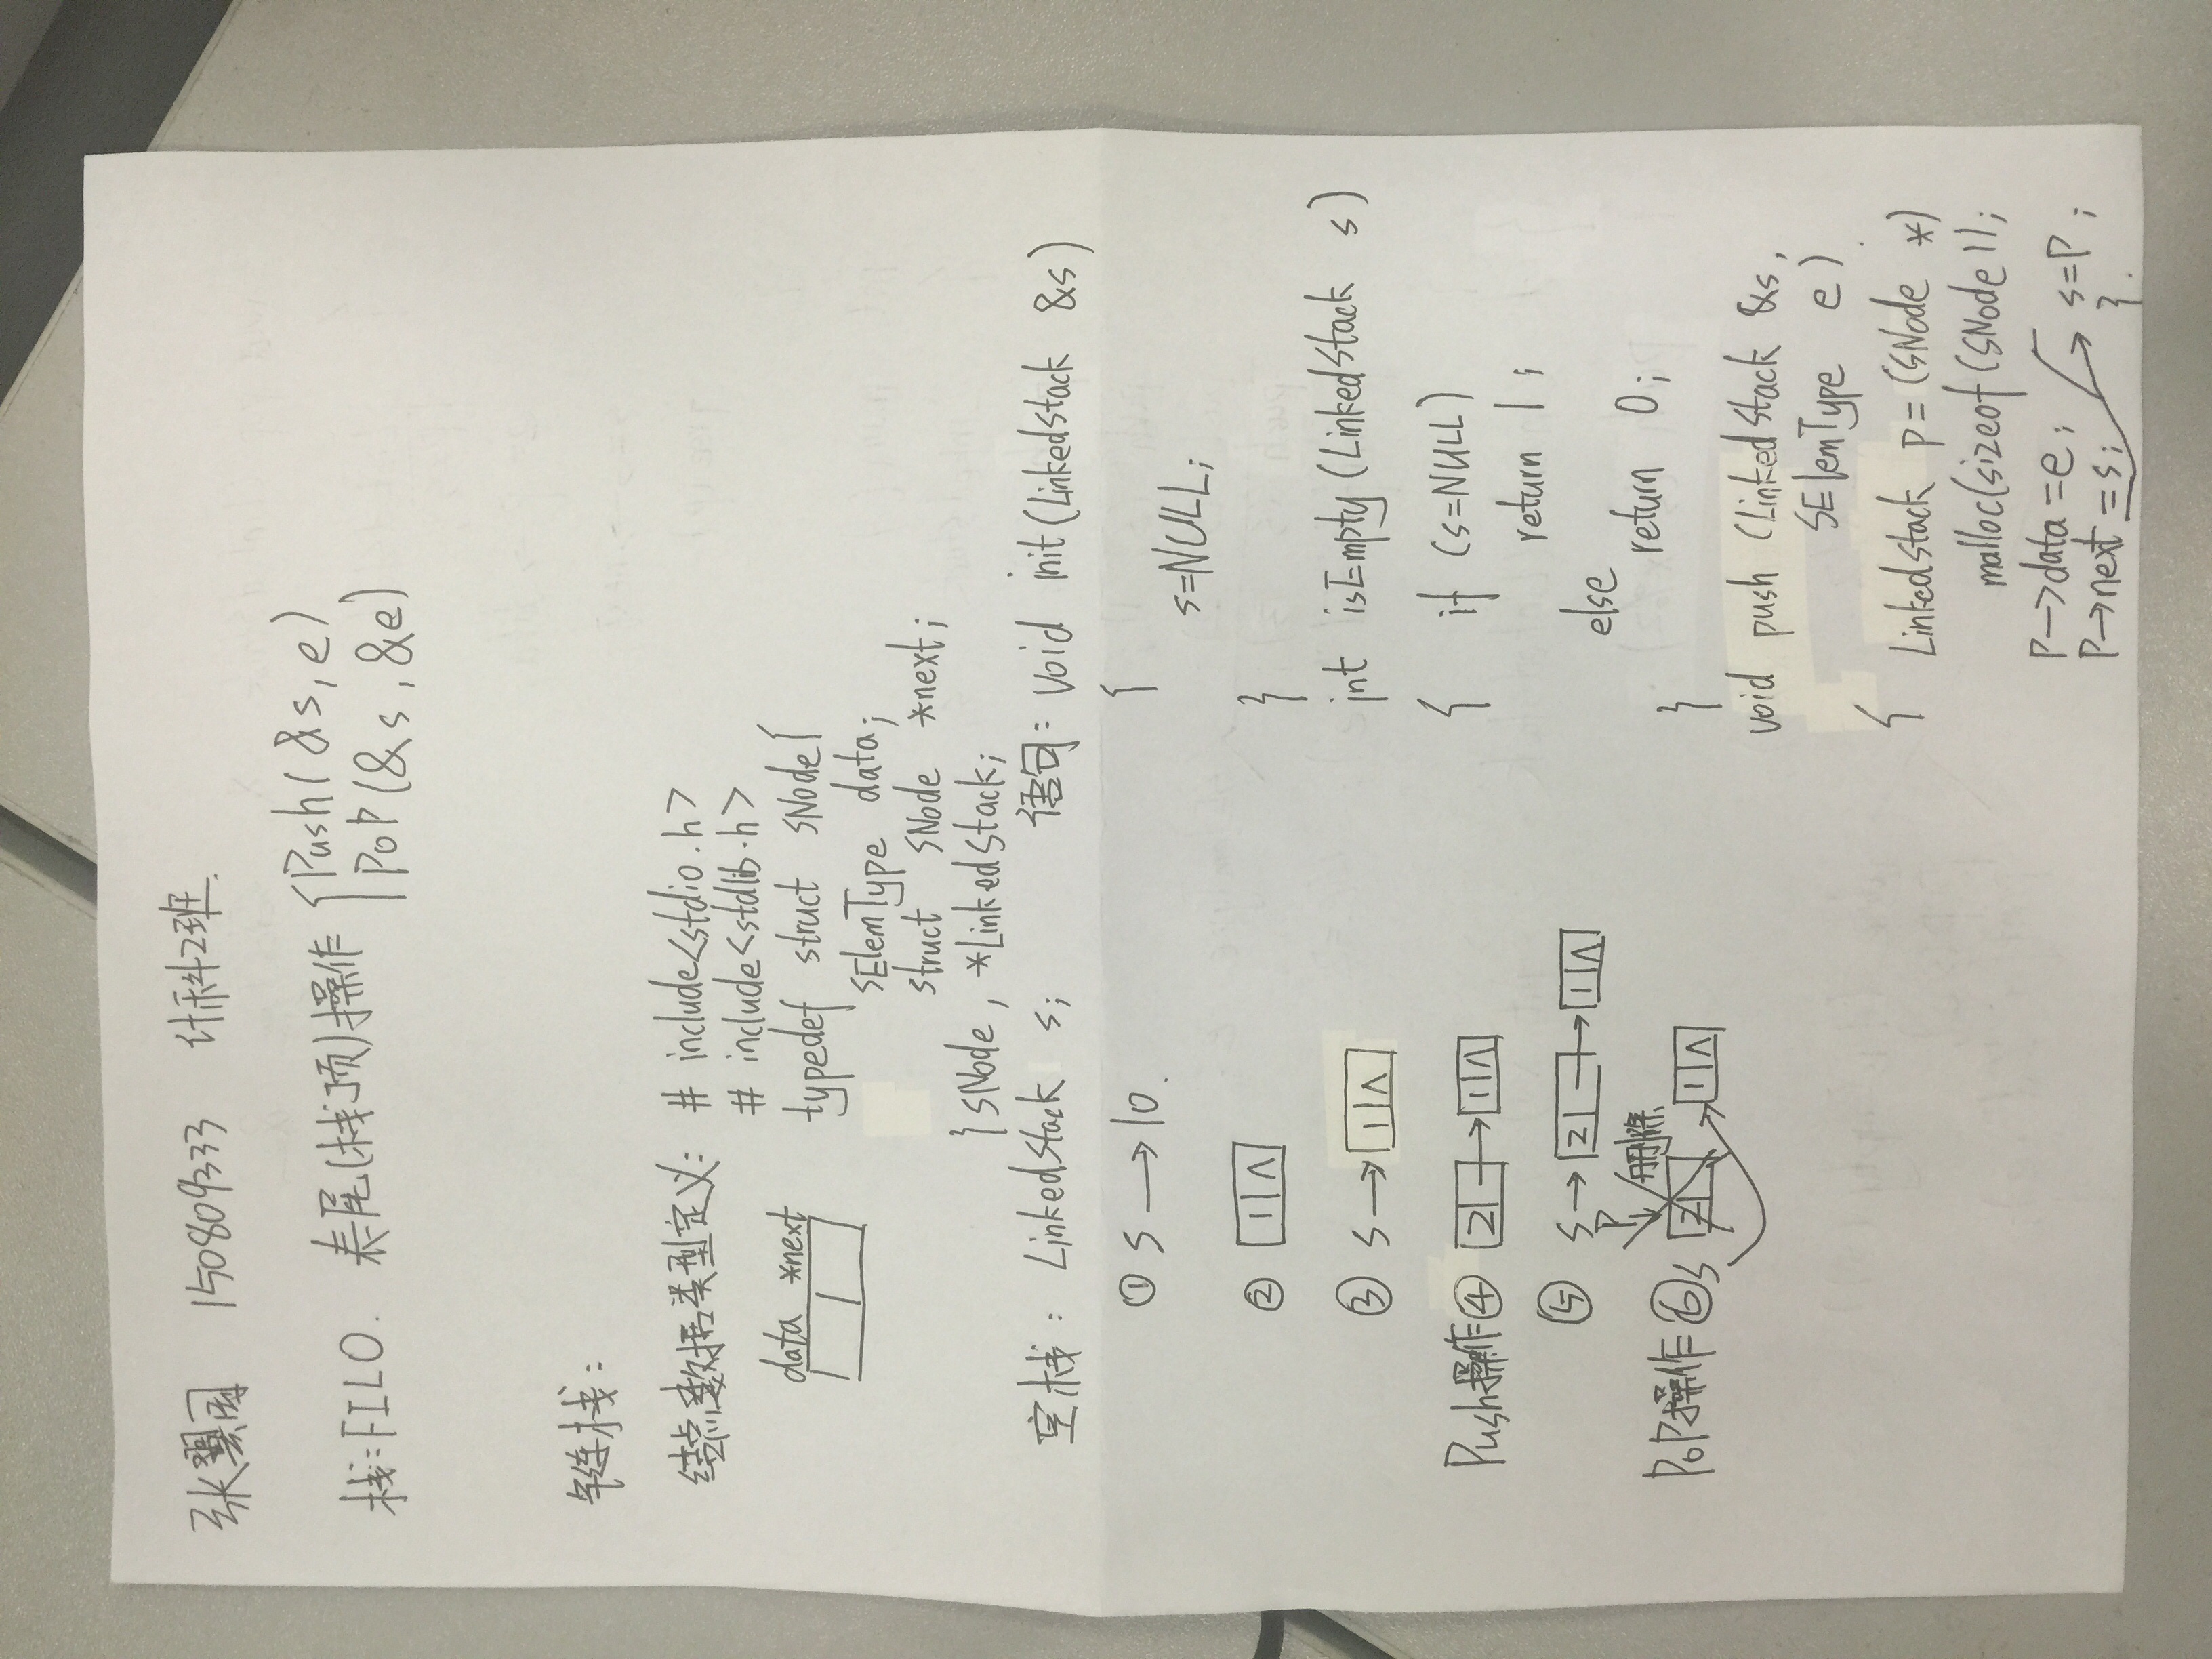 张翼国 150809333 计科2班.
栈:FILO. 表尾(栈顶)操作 {Push(&s,e)
PoP(&s,&e)
结点数据类型定义: # include<stdio.h>
# include<stdlib.h>
data *next
typedef struct SNode{
SElemType data;
struct SNode *next;
}SNode, *LinkedStack;
空栈: LinkedStack s;
① S→10.
② 1 ∧
③ S→ 1 ∧
Push操作④ 2 → 1 ∧
⑤ S→ 2 → 1 ∧
P 删除
PoP操作⑥ S 2 1 ∧
语句: void init(LinkedStack &s)
{
s=NULL;
}
int isEmpty(LinkedStack s)
{ if (s=NULL)
return 1;
else
return 0;
}
void push (LinkedStack &s,
SElemType e)
{ LinkedStack P=(SNode *)
malloc(sizeof(SNode));
P→data=e;
P→next=s;
s=P;
}